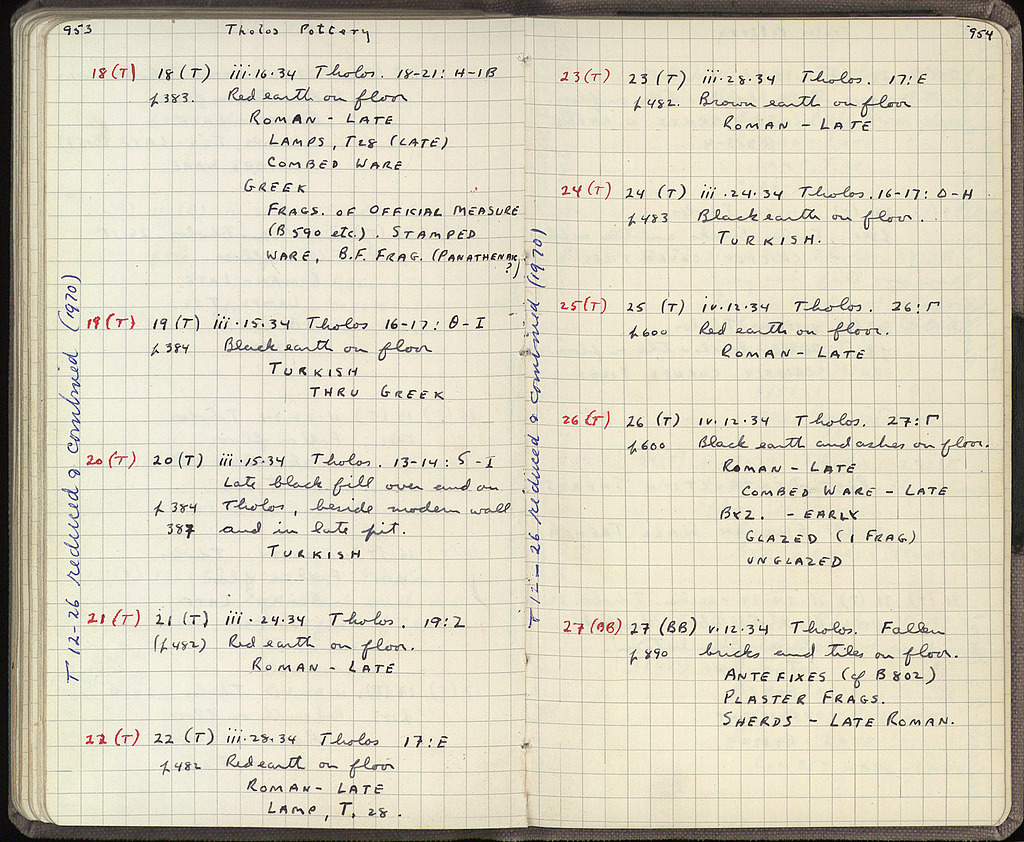 953
Tholos Pottery
18(T) 18(T) iii.16.34 Tholos. 18-21: H-IB
p383. Red earth on floor
ROMAN - LATE
LAMPS, T28 (LATE)
COMBED WARE
GREEK
FRAGS. OF OFFICIAL MEASURE
(B590 etc.). STAMPED
WARE, B.F. FRAG. (PANATHENAIC
?)
19(T) 19(T) iii.15.34 Tholos 16-17: Θ-I
p384 Black earth on floor
TURKISH
THRU GREEK
20(T) 20(T) iii.15.34 Tholos. 13-14: S-I
Late black fill over and on
p384 Tholos, beside modern wall
387 and in late pit.
TURKISH
21(T) 21(T) iii.24.34 Tholos. 19:Z
(p482) Red earth on floor.
ROMAN - LATE
22(T) 22(T) iii.28.34 Tholos 17:E
p482 Red earth on floor
ROMAN - LATE
LAMP, T. 28.
T 12-26 reduced & combined (1970)
954
23(T) 23(T) iii.28.34 Tholos. 17:E
p482. Brown earth on floor
ROMAN - LATE
24(T) 24(T) iii.24.34 Tholos. 16-17: Δ-H
p483 Black earth on floor.
TURKISH.
25(T) 25(T) iv.12.34 Tholos. 26:Γ
p600 Red earth on floor.
ROMAN - LATE
26(T) 26(T) iv.12.34 Tholos. 27:Γ
p600 Black earth and ashes on floor.
ROMAN - LATE
COMBED WARE - LATE
BYZ. - EARLY
GLAZED (1 FRAG)
UNGLAZED
27(BB) 27(BB) v.12.34 Tholos. Fallen
p890 bricks and tiles on floor.
ANTEFIXES (cf B802)
PLASTER FRAGS.
SHERDS - LATE ROMAN.
T 12-26 reduced & combined (1970)